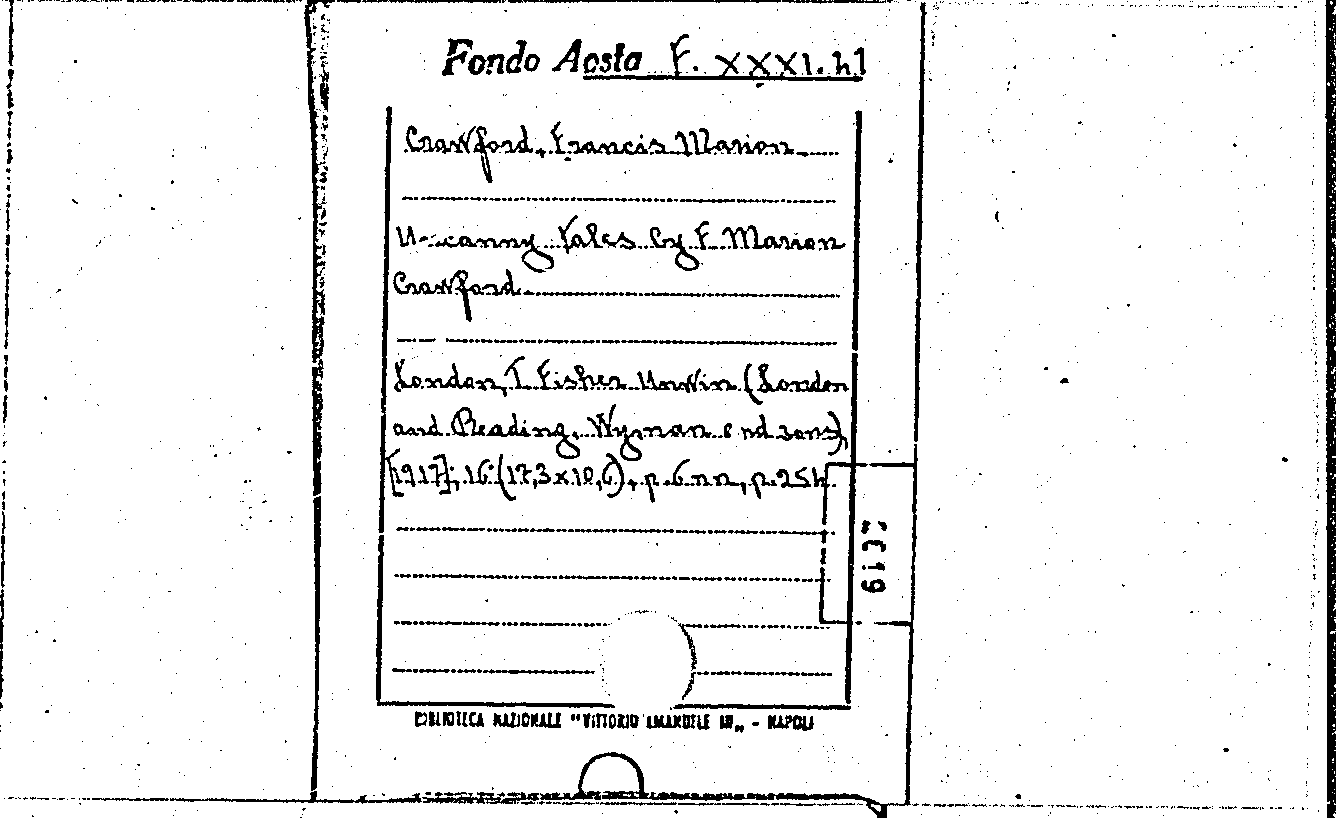 Fondo Aosta F. XXXI. h1
Crawford, Francis Marion
Uncanny tales by F Marion
Crawford
London, T. Fisher Unwin (London
and Reading, Wyman and sons),
[1917]; 16° (17,3x10,6), p. 6 nn, p.
BIBLIOTECA NAZIONALE "VITTORIO EMANUELE III„ - NAPOLI